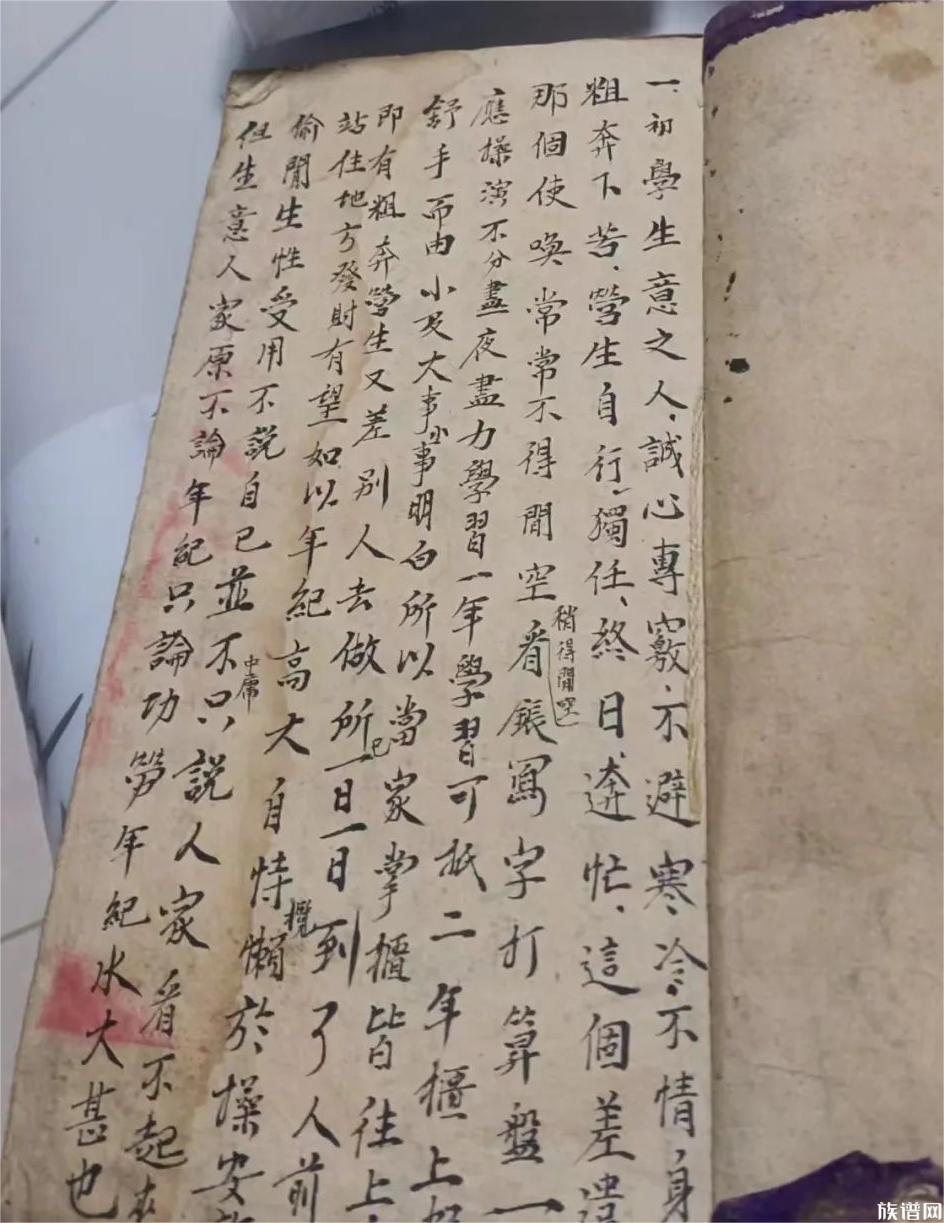 一初學生意之人誠心專竅不避寒冷不情身
粗奔下苦營生自行獨任終日逩忙這個差遣
那個使喚常常不得閒空看賬寫字打算盤一
稍得閒空
應操演不分晝夜盡力學習一年學習可抵二年櫃上
舒手而由小及大事小事明白所以當家掌櫃皆徃上
即有粗奔營生又差別人去做所一日一日到了人前
已
站住地方發財有望如以年紀高大自恃懶於操
概
偷閒生性受用不說自己並不只說人家看不起
中庸
但生意人家原不論年紀只論功勞年紀水大甚也
族谱网